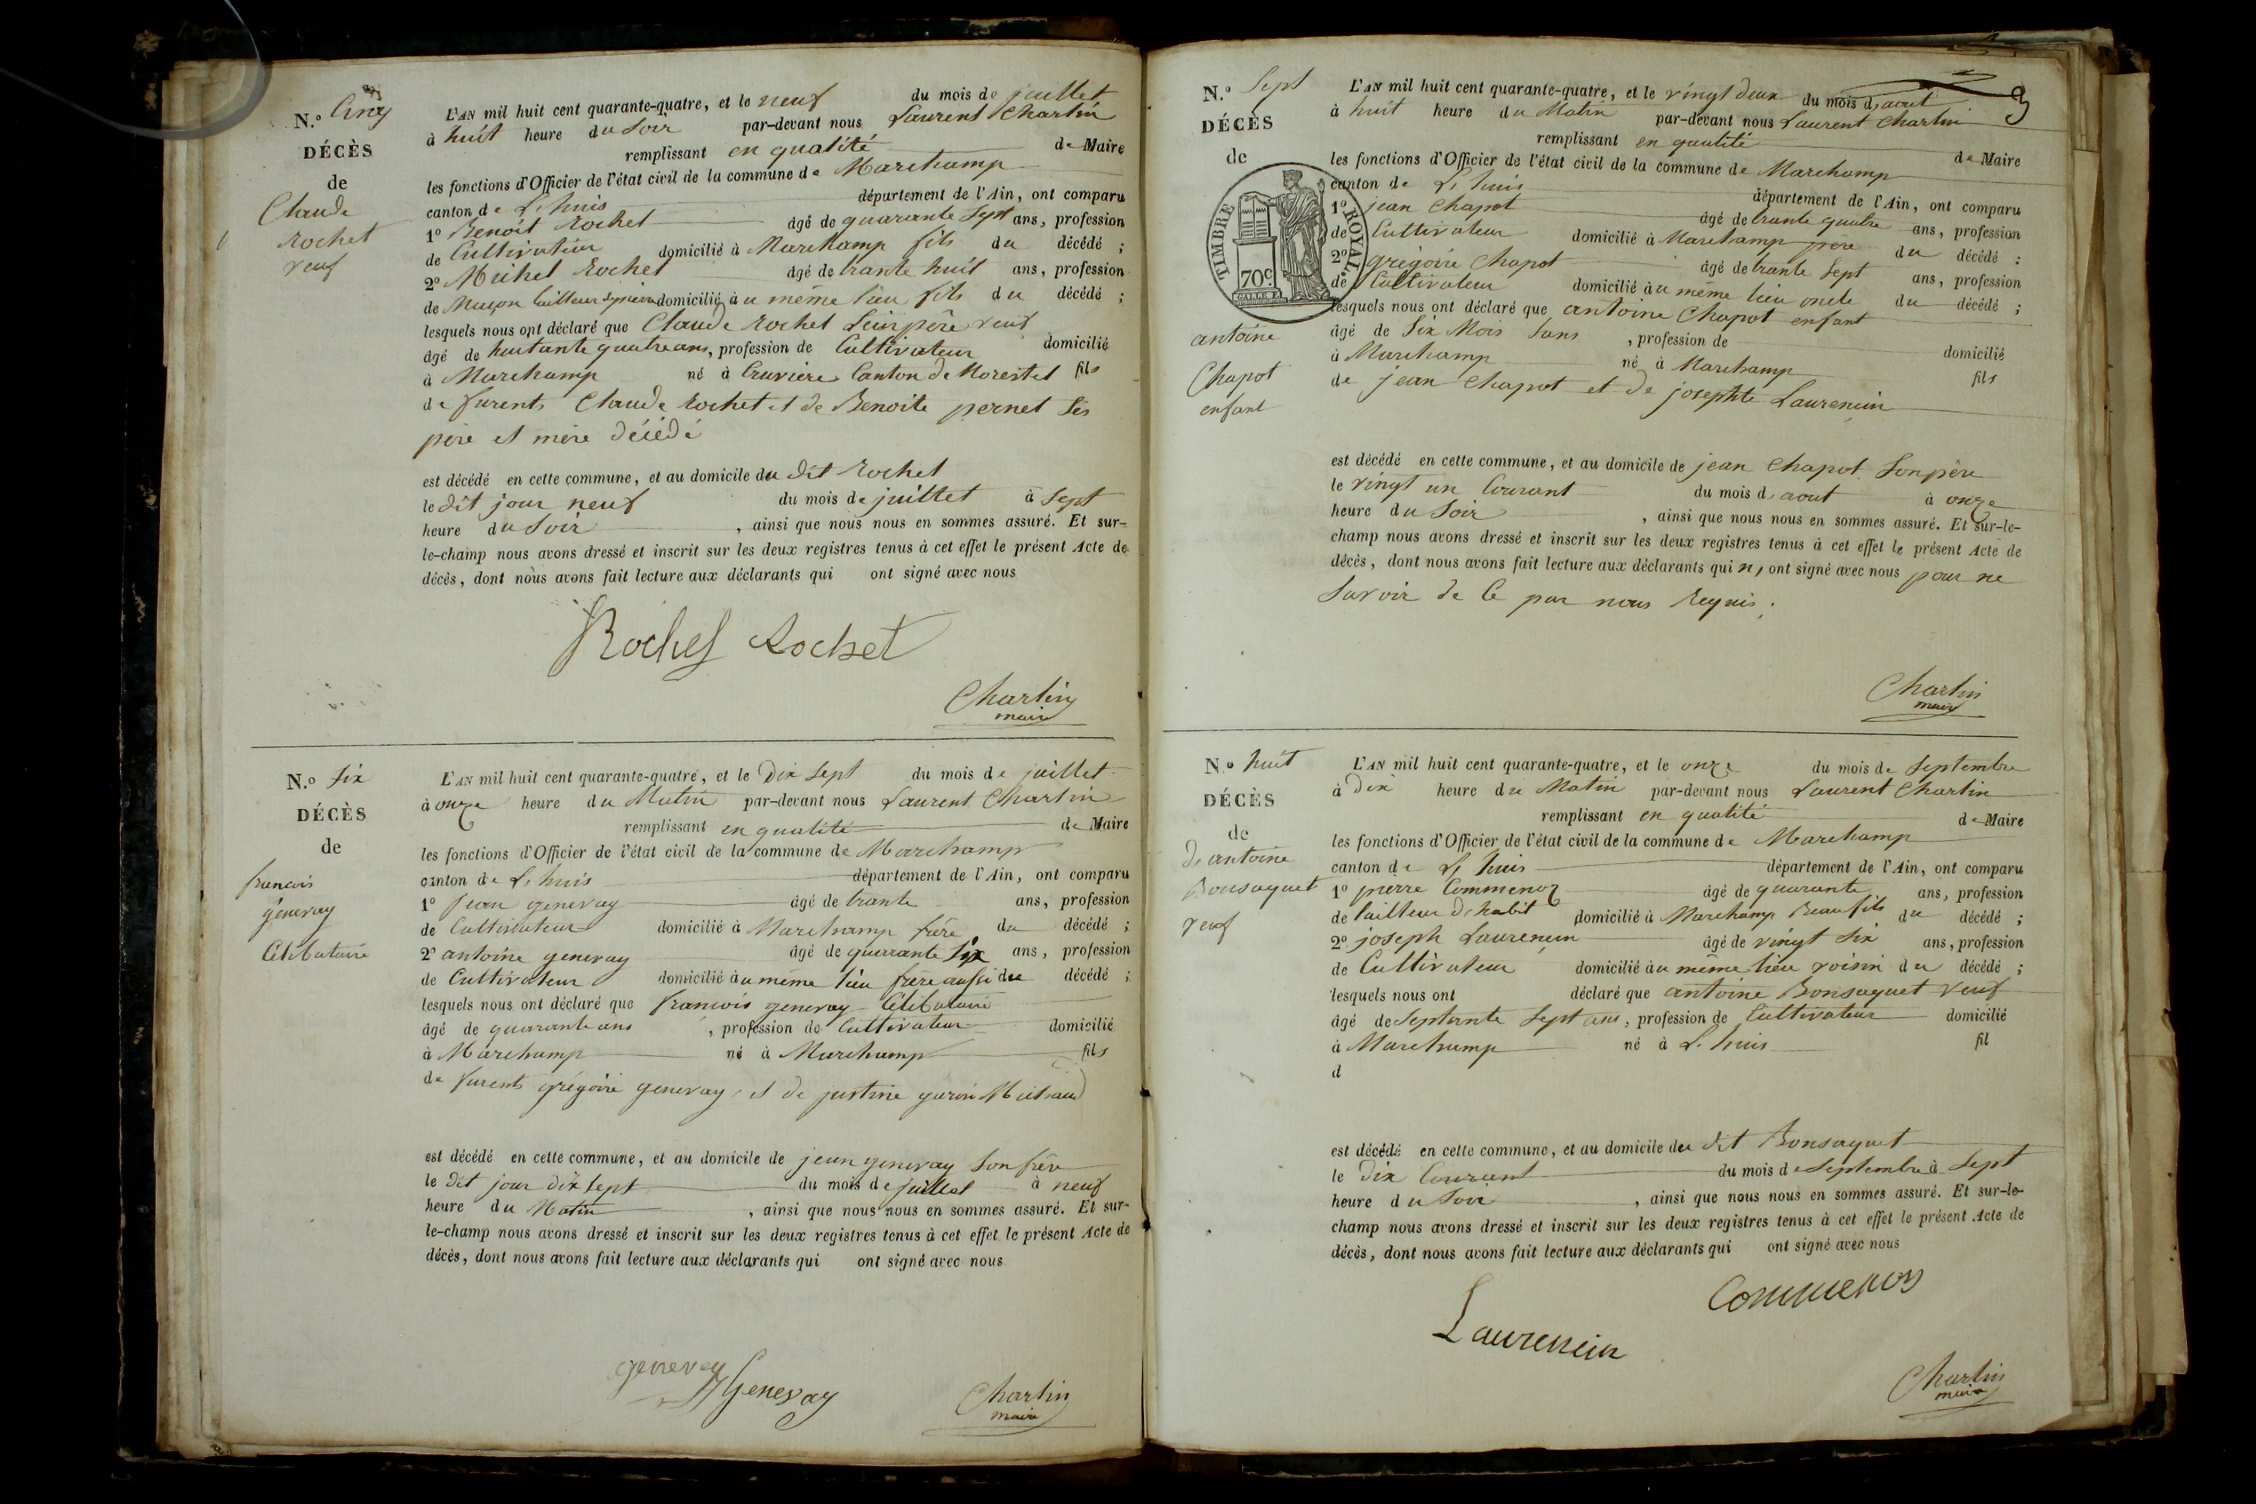 N.° Cinq
DÉCÈS
de
Claude
Rochet
veuf
L'AN mil huit cent quarante-quatre, et le neuf du mois de juillet
à huit heure du Soir par-devant nous Laurent Chartin
remplissant en qualité de Maire
les fonctions d'Officier de l'état civil de la commune de Marchamp
canton de L'huis département de l'Ain, ont comparu
1° Benoit Rochet âgé de quarante Sept ans, profession
de Cultivateur domicilié à Marchamp fils du décédé ;
2° Michel Rochet âgé de trante huit ans, profession
de Maçon tailleur de pierre domicilié au même lieu fils du décédé ;
lesquels nous ont déclaré que Claude Rochet Leur père veuf
âgé de huitante quatre ans, profession de Cultivateur domicilié
à Marchamp né à Canton de Morestel fils
de furents Claude Rochet et de Benoite pernet Ses
père et mère décédé
est décédé en cette commune, et au domicile du dit Rochet
le dit jour neuf du mois de juillet à Sept
heure du Soir , ainsi que nous nous en sommes assuré. Et sur-
le-champ nous avons dressé et inscrit sur les deux registres tenus à cet effet le présent Acte de
décès, dont nous avons fait lecture aux déclarants qui ont signé avec nous
Rochet Rochet
Chartin
maire
N.° Six
DÉCÈS
de
francois
genevay
Célibataire
L'AN mil huit cent quarante-quatre, et le Dix Sept du mois de juillet
à onze heure du Matin par-devant nous Laurent Chartin
remplissant en qualité de Maire
les fonctions d'Officier de l'état civil de la commune de Marchamp
canton de L'huis département de l'Ain, ont comparu
1° Jean genevay âgé de trante ans, profession
de Cultivateur domicilié à Marchamp frère du décédé ;
2° antoine genevay âgé de quarante Six ans, profession
de Cultivateur domicilié au même lieu frère aussi du décédé ;
lesquels nous ont déclaré que francois genevay Célibataire
âgé de quarante ans , profession de Cultivateur domicilié
à Marchamp né à Marchamp fils
de furents grégoire genevay et de justine
est décédé en cette commune, et au domicile de jean genevay Son frère
le dit jour dix Sept du mois de juillet à neuf
heure du Matin , ainsi que nous nous en sommes assuré. Et sur-
le-champ nous avons dressé et inscrit sur les deux registres tenus à cet effet le présent Acte de
décès, dont nous avons fait lecture aux déclarants qui ont signé avec nous
genevay
Genevay
Chartin
maire
3
N.° Sept
DÉCÈS
de
TIMBRE ROYAL
70c
antoine
Chapot
enfant
L'AN mil huit cent quarante-quatre, et le vingt deux du mois d'aout
à huit heure du Matin par-devant nous Laurent Chartin
remplissant en qualité de Maire
les fonctions d'Officier de l'état civil de la commune de Marchamp
canton de L'huis département de l'Ain, ont comparu
1° jean Chapot âgé de trante quatre ans, profession
de Cultivateur domicilié à Marchamp père du décédé ;
2° grégoire Chapot âgé de trante Sept ans, profession
de Cultivateur domicilié au même lieu oncle du décédé ;
lesquels nous ont déclaré que antoine Chapot enfant
âgé de Six Mois Sans , profession de domicilié
à Marchamp né à Marchamp fils
de jean Chapot et de josephte Laurençin
est décédé en cette commune, et au domicile de jean Chapot Son père
le vingt un Courant du mois d'aout à onze
heure du Soir , ainsi que nous nous en sommes assuré. Et sur-le-
champ nous avons dressé et inscrit sur les deux registres tenus à cet effet le présent Acte de
décès, dont nous avons fait lecture aux déclarants qui n'ont signé avec nous pour ne
Savoir de Ce par nous Requis.
Chartin
maire
N.° huit
DÉCÈS
de
d'antoine
Bonsaquet
veuf
L'AN mil huit cent quarante-quatre, et le onze du mois de Septembre
à Dix heure du Matin par-devant nous Laurent Chartin
remplissant en qualité de Maire
les fonctions d'Officier de l'état civil de la commune de Marchamp
canton de L'huis département de l'Ain, ont comparu
1° pierre Commenoz âgé de quarante ans, profession
de tailleur d'habit domicilié à Marchamp Beau fils du décédé ;
2° joseph Laurençin âgé de vingt Six ans, profession
de Cultivateur domicilié au même lieu voisin du décédé ;
lesquels nous ont déclaré que antoine Bonsaquet veuf
âgé de Septante Sept ans, profession de Cultivateur domicilié
à Marchamp né à L'huis fil
d
est décédé en cette commune, et au domicile du dit Bonsaquet
le Dix Courant du mois de Septembre à Sept
heure du Soir , ainsi que nous nous en sommes assuré. Et sur-le-
champ nous avons dressé et inscrit sur les deux registres tenus à cet effet le présent Acte de
décès, dont nous avons fait lecture aux déclarants qui ont signé avec nous
Commenoz
Laurencin
Chartin
maire